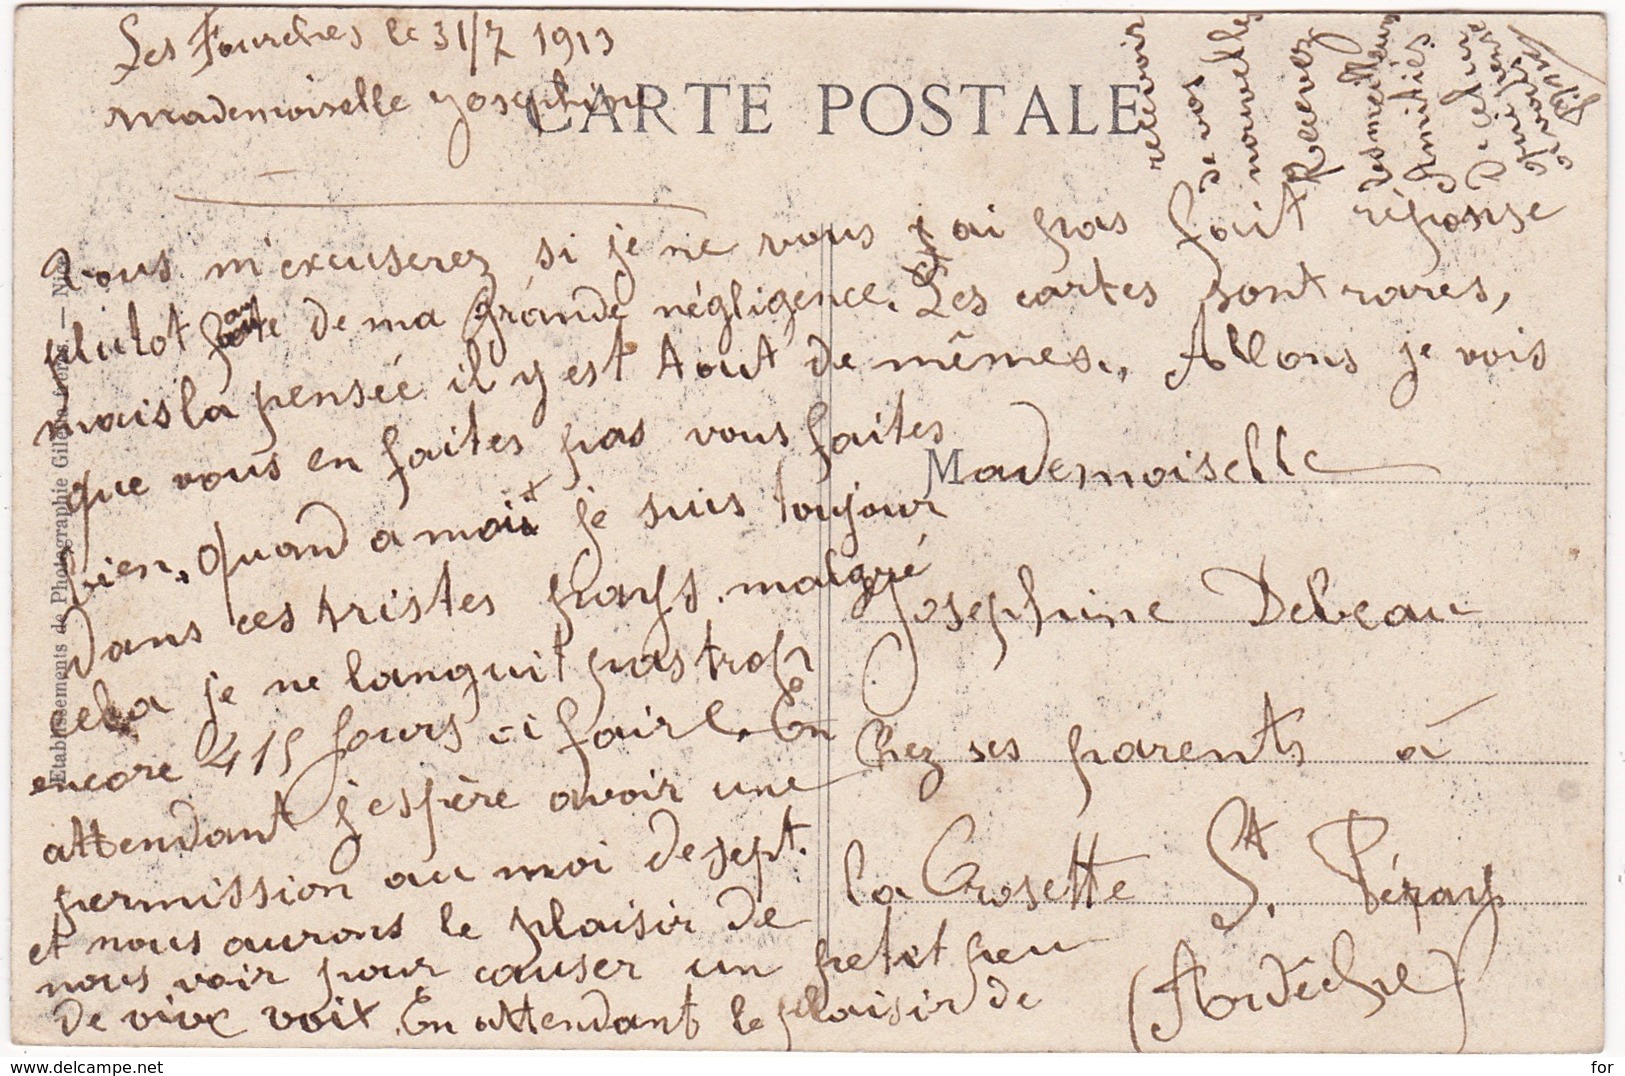 Les Fourches le 31/7 1913
Mademoiselle Josephine
CARTE POSTALE
Vous m'excuserez si je ne vous ai pas fait réponse
plutot de ma grande négligence. Les cartes sont rares,
mais la pensée il y est tout de mêmes., Allons je vois
que vous en faites pas vous faites
bien, quand a moi je suis toujour
dans ces tristes pays. malgré
cela je ne languit pas trop
encore 415 jours à faire. En
attendant j'espère avoir une
permission au moi de sept.
et nous aurons le plaisir de
nous voir pour causer un petit peu
de vive voix. En attendant le plaisir de
recevoir
de vos
nouvelles
Recevez
les meilleurs
Amitiés
De celui
qui
Mademoiselle
Josephine Debeau
Chez ses parents à
la Crosette St. Péray
(Ardèche)
Etablissements de Photographie Giletta frères — Nice
www.delcampe.net
for